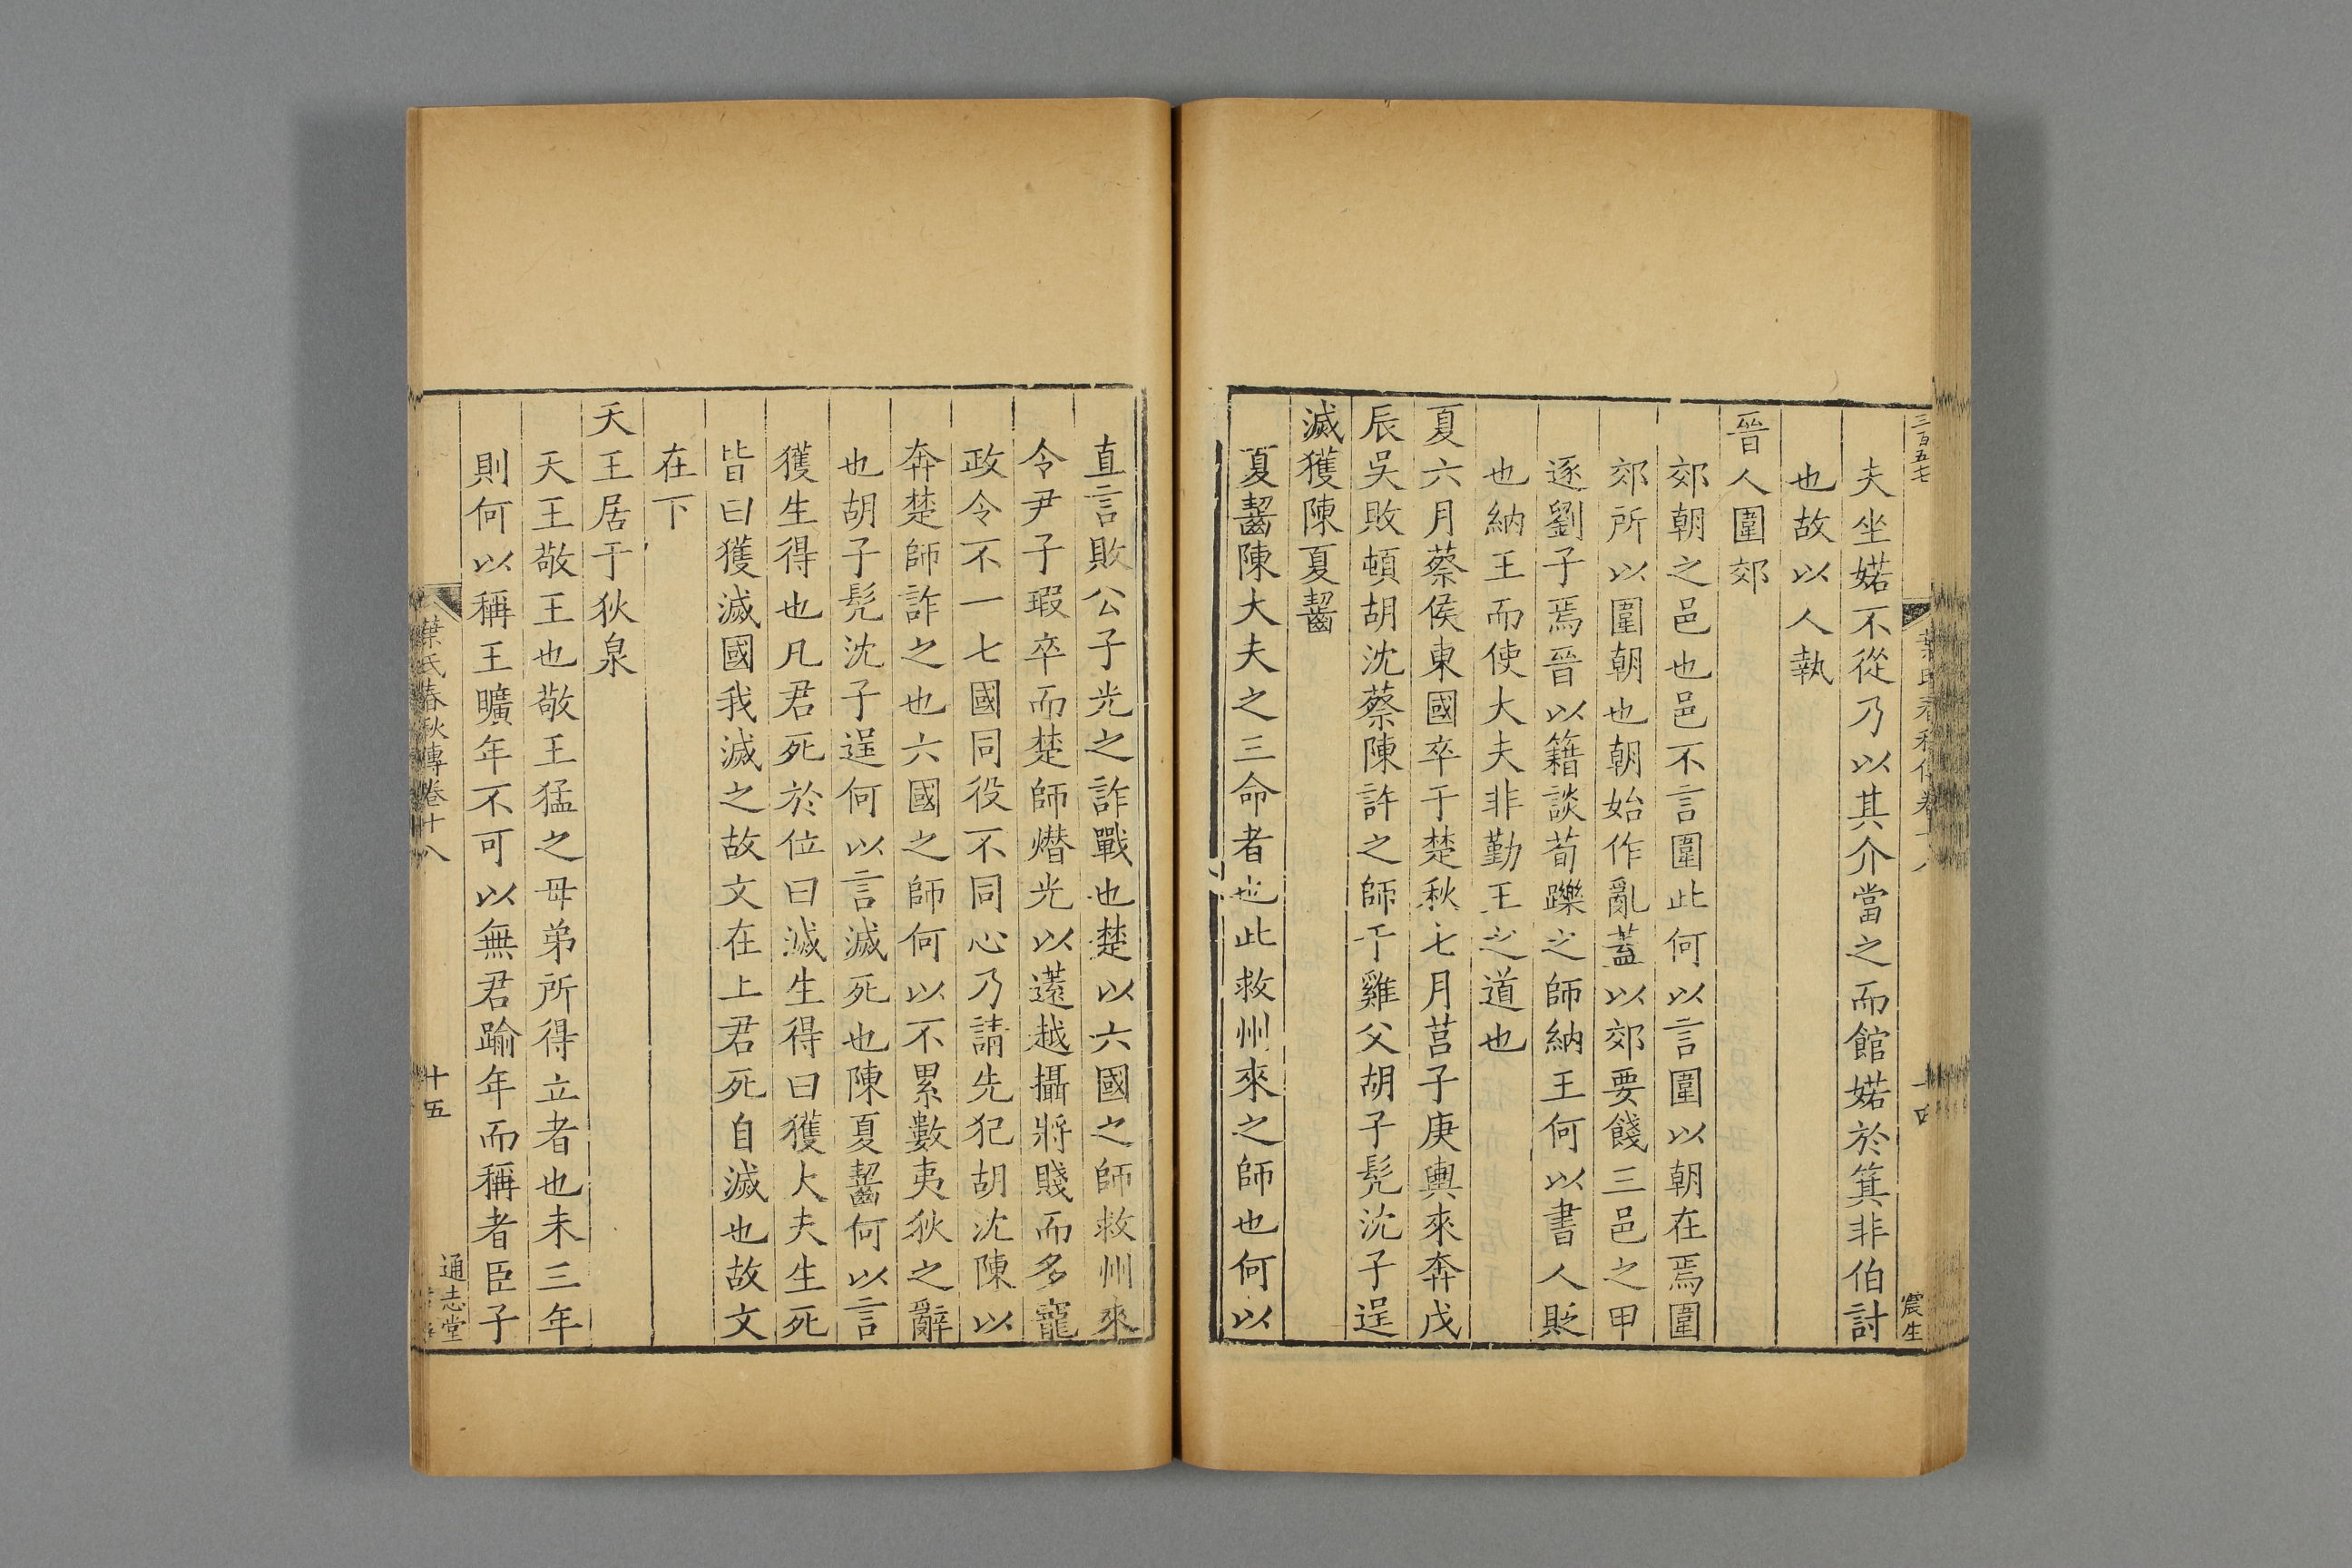 三百五七
震生
夫坐婼不從乃以其介當之而館婼於箕非伯討
也故以人執
晉人圍郊
郊朝之邑也邑不言圍此何以言圍以朝在焉圍
郊所以圍朝也朝始作亂蓋以郊要餞三邑之甲
逐劉子焉晉以籍談荀躒之師納王何以書人貶
也納王而使大夫非勤王之道也
夏六月蔡侯東國卒于楚秋七月莒子庚輿來奔戊
辰吳敗頓胡沈蔡陳許之師于雞父胡子髡沈子逞
滅獲陳夏齧
夏齧陳大夫之三命者也此救州來之師也何以
直言敗公子光之詐戰也楚以六國之師救州來
令尹子瑕卒而楚師熸光以薳越攝將賤而多寵
政令不一七國同役不同心乃請先犯胡沈陳以
奔楚師詐之也六國之師何以不累數夷狄之辭
也胡子髡沈子逞何以言滅死也陳夏齧何以言
獲生得也凡君死於位曰滅生得曰獲大夫生死
皆曰獲滅國我滅之故文在上君死自滅也故文
在下
天王居于狄泉
天王敬王也敬王猛之母弟所得立者也未三年
則何以稱王曠年不可以無君踰年而稱者臣子
葉氏春秋傳卷十八
十五
通志堂